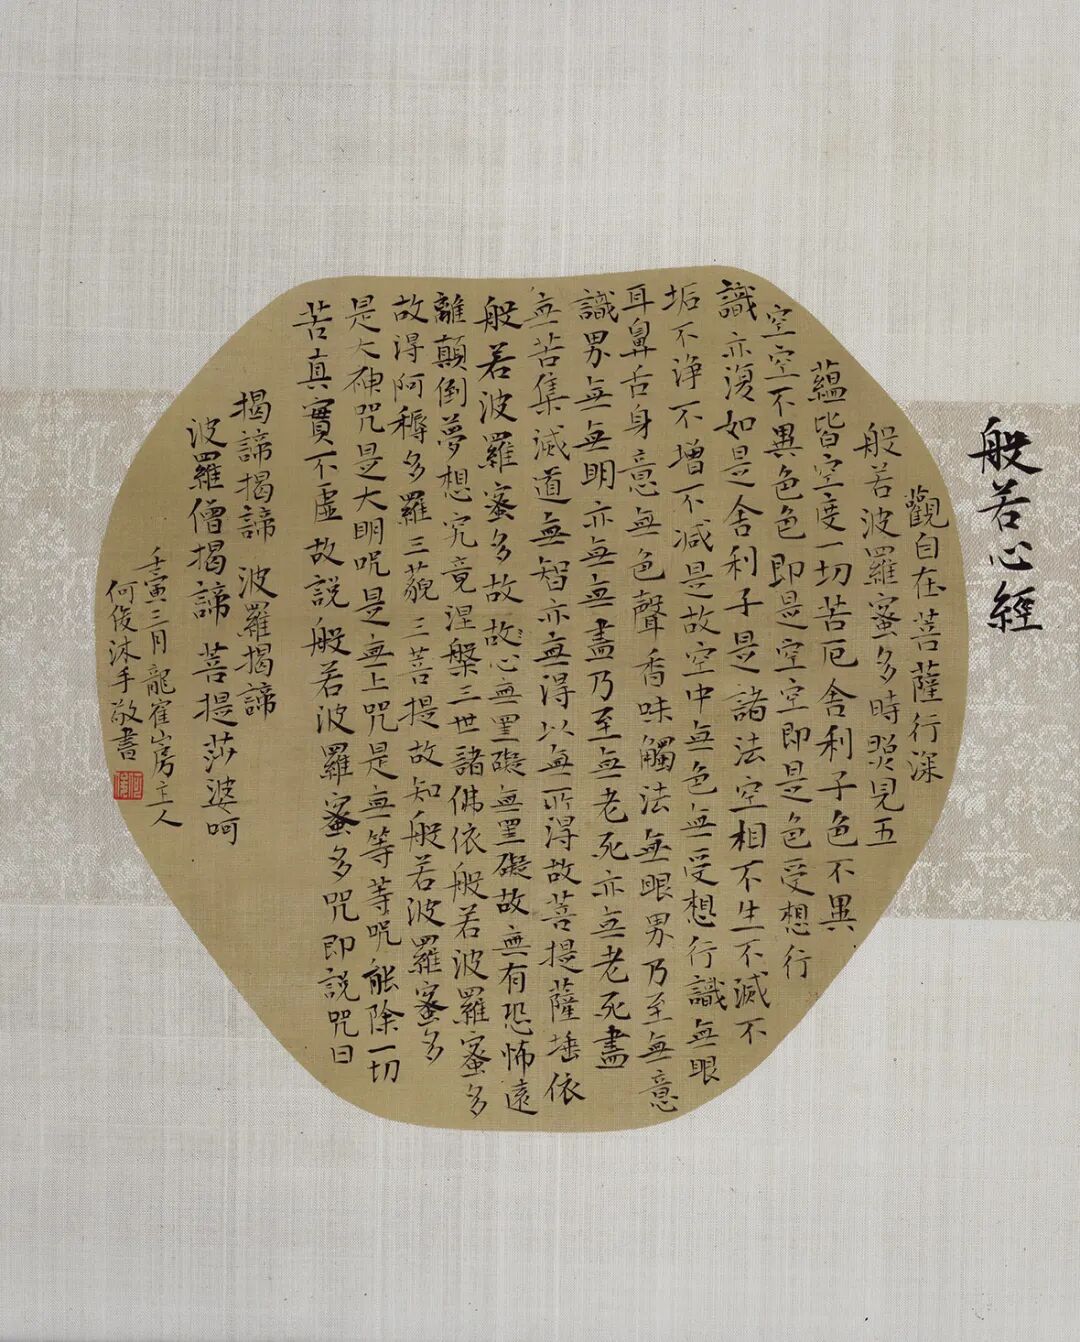 般若心經
觀自在菩薩行深
般若波羅蜜多時照見五
蘊皆空度一切苦厄舍利子色不異
空空不異色色即是空空即是色受想行
識亦復如是舍利子是諸法空相不生不滅不
垢不淨不增不減是故空中無色無受想行識無眼
耳鼻舌身意無色聲香味觸法無眼界乃至無意
識界無無明亦無無盡乃至無老死亦無老死盡
無苦集滅道無智亦無得以無所得故菩提薩埵依
般若波羅蜜多故故心無罣礙無罣礙故無有恐怖遠
離顛倒夢想究竟涅槃三世諸佛依般若波羅蜜多
故得阿耨多羅三藐三菩提故知般若波羅蜜多
是大神咒是大明咒是無上咒是無等等咒能除一切
苦真實不虛故說般若波羅蜜多咒即說咒曰
揭諦揭諦 波羅揭諦
波羅僧揭諦 菩提莎婆呵
壬寅三月龍崔山房主人
何俊沐手敬書